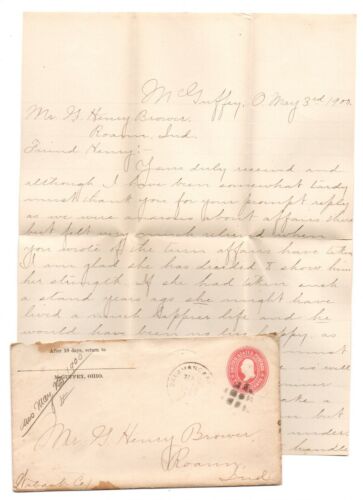 McGuffey, O. May 3rd 1900
Mr. G. Henry Brower,
Roann, Ind.
Friend Henry:-
Yours duly received and
although I have been somewhat tardy
must thank you for your prompt reply
as we were anxious about affairs
but felt very much relieved when
you wrote of the turn affairs have taken
I am glad she has decided to show him
her strength. If she had taken such
a stand years ago she might have
lived a much happier life and he
would have been no less happy. as
as well
make a
but
handle
After 10 days, return to
McGUFFEY, OHIO.
ans May 1900
UNITED STATES POSTAGE
Mr. G. Henry Brower,
Roann,
Wabash Co. Ind.